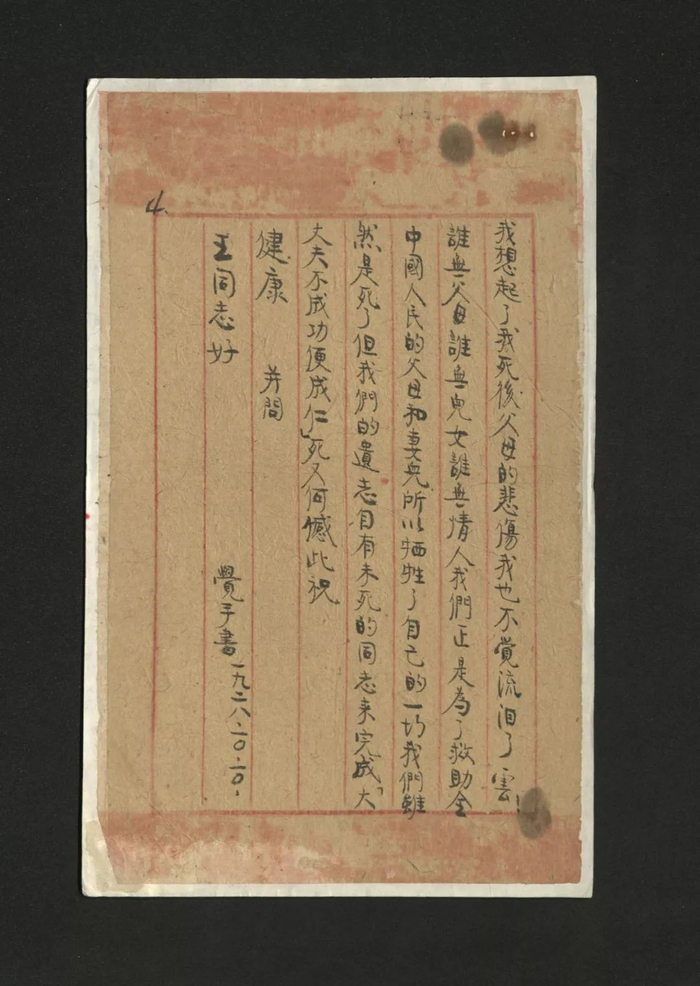 4.
我想起了我死後父母的悲傷我也不覺流泪了雲!
誰無父母誰無兒女誰無情人我們正是為了救助全
中國人民的父母和妻兒所以牺牲了自己的一切我們雖
然是死了但我們的遺志自有未死的同志来完成「大
丈夫不成功便成仁」死又何憾此祝
健康 并問
王同志好
覺手書一九二八.一〇.一〇.